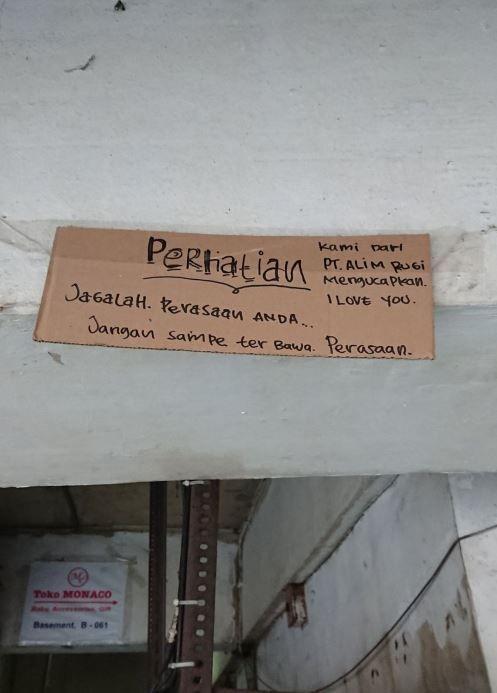 PERHatian
Jagalah. Perasaan ANDA...
Jangan sampe ter Bawa. Perasaan.
Kami Dari
PT. ALIM RUGI
Mengucapkan.
I LOVE YOU.
Toko MONACO
Basement, B - 061